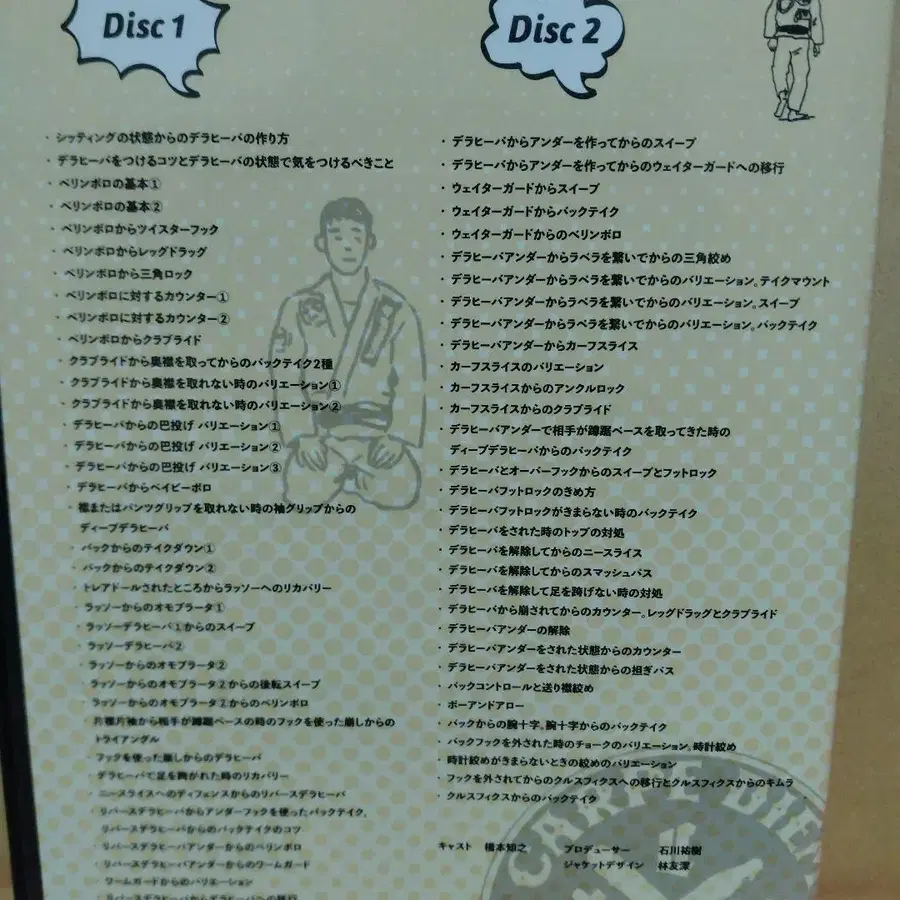 Disc 1
・シッティングの状態からのデラヒーバの作り方
・デラヒーバをつけるコツとデラヒーバの状態で気をつけるべきこと
・ベリンボロの基本①
・ベリンボロの基本②
・ベリンボロからツイスターフック
・ベリンボロからレッグドラッグ
・ベリンボロから三角ロック
・ベリンボロに対するカウンター①
・ベリンボロに対するカウンター②
・ベリンボロからクラブライド
・クラブライドから奥襟を取ってからのバックテイク2種
・クラブライドから奥襟を取れない時のバリエーション①
・クラブライドから奥襟を取れない時のバリエーション②
・デラヒーバからの巴投げ バリエーション①
・デラヒーバからの巴投げ バリエーション②
・デラヒーバからの巴投げ バリエーション③
・デラヒーバからベイビーボロ
・襟またはパンツグリップを取れない時の袖グリップからの
ディープデラヒーバ
・バックからのテイクダウン①
・バックからのテイクダウン②
・トレアドールされたところからラッソーへのリカバリー
・ラッソーからのオモプラータ①
・ラッソーデラヒーバ①からのスイープ
・ラッソーデラヒーバ②
・ラッソーからのオモプラータ②
・ラッソーからのオモプラータ②からの後転スイープ
・ラッソーからのオモプラータ②からのベリンボロ
・片襟片袖から相手が蹲踞ベースの時のフックを使った崩しからの
トライアングル
・フックを使った崩しからのデラヒーバ
・デラヒーバで足を跨がれた時のリカバリー
・ニースライスへのディフェンスからのリバースデラヒーバ
・リバースデラヒーバからアンダーフックを使ったバックテイク。
・リバースデラヒーバからのバックテイクのコツ
・リバースデラヒーバアンダーからのベリンボロ
・リバースデラヒーバアンダーからのワームガード
・ワームガードからのバリエーション
・リバースデラヒーバからデラヒーバへの移行
Disc 2
・デラヒーバからアンダーを作ってからのスイープ
・デラヒーバからアンダーを作ってからのウェイターガードへの移行
・ウェイターガードからスイープ
・ウェイターガードからバックテイク
・ウェイターガードからのベリンボロ
・デラヒーバアンダーからラペラを繋いでからの三角絞め
・デラヒーバアンダーからラペラを繋いでからのバリエーション。テイクマウント
・デラヒーバアンダーからラペラを繋いでからのバリエーション。スイープ
・デラヒーバアンダーからラペラを繋いでからのバリエーション。バックテイク
・デラヒーバアンダーからカーフスライス
・カーフスライスのバリエーション
・カーフスライスからのアンクルロック
・カーフスライスからのクラブライド
・デラヒーバアンダーで相手が蹲踞ベースを取ってきた時の
ディープデラヒーバからのバックテイク
・デラヒーバとオーバーフックからのスイープとフットロック
・デラヒーバフットロックのきめ方
・デラヒーバフットロックがきまらない時のバックテイク
・デラヒーバをされた時のトップの対処
・デラヒーバを解除してからのニースライス
・デラヒーバを解除してからのスマッシュパス
・デラヒーバを解除して足を跨げない時の対処
・デラヒーバから崩されてからのカウンター。レッグドラッグとクラブライド
・デラヒーバアンダーの解除
・デラヒーバアンダーをされた状態からのカウンター
・デラヒーバアンダーをされた状態からの担ぎパス
・バックコントロールと送り襟絞め
・ボーアンドアロー
・バックからの腕十字。腕十字からのバックテイク
・バックフックを外された時のチョークのバリエーション。時計絞め
・時計絞めがきまらないときの絞めのバリエーション
・フックを外されてからのクルスフィクスへの移行とクルスフィクスからのキムラ
・クルスフィクスからのバックテイク
キャスト 橋本知之 プロデューサー 石川祐樹
ジャケットデザイン 林友深
CARPE DIEM